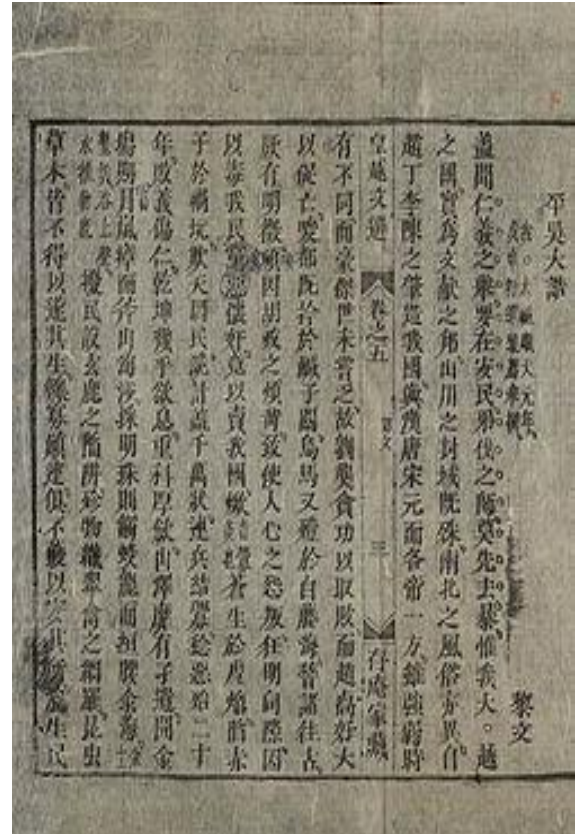 平吳大誥
黎文
盖聞仁義之舉要在安民弔伐之師莫先去暴惟我大。越
之國實爲文献之邦山川之封域既殊南北之風俗亦異自
趙丁李陳之肇造我國與漢唐宋元而各帝一方雖強弱時
皇越文選 卷之五 誥文 三 存庵家藏
有不同而豪傑世未嘗乏故劉龑貪功以取敗而趙卨好大
以促亡唆都既拾於鹹子關烏馬又殪於白藤海稽諸往古
厥有明徵頃因胡政之煩苛致使人心之怨叛狂明伺隙因
以毒我民黨邪懷奸竟以賣我國焮蒼生於虐焰陷赤
子於禍坑欺天罔民詭計盖千萬狀連兵結釁稔惡殆二十
年敗義傷仁乾坤幾乎欲息重科厚歛山澤靡有孑遺開金
塲則冒嵐瘴而斧山淘沙採明珠則觸蛟龍而絙腰汆海
擾民設玄鹿之陷阱殄物織翠禽之網羅昆虫
草木皆不得以遂其生鰥寡顛連俱不獲以安其所生民